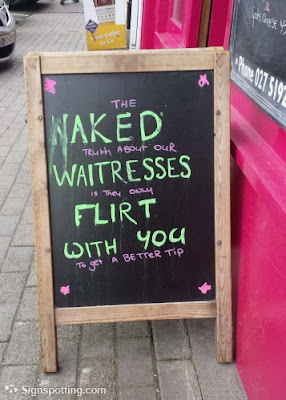 THE
NAKED
TRUTH ABOUT OUR
WAITRESSES
is THEY ONLY
FLIRT
WITH YOU
To get A BETTER TIP
Phone 027 5192
Signspotting.com